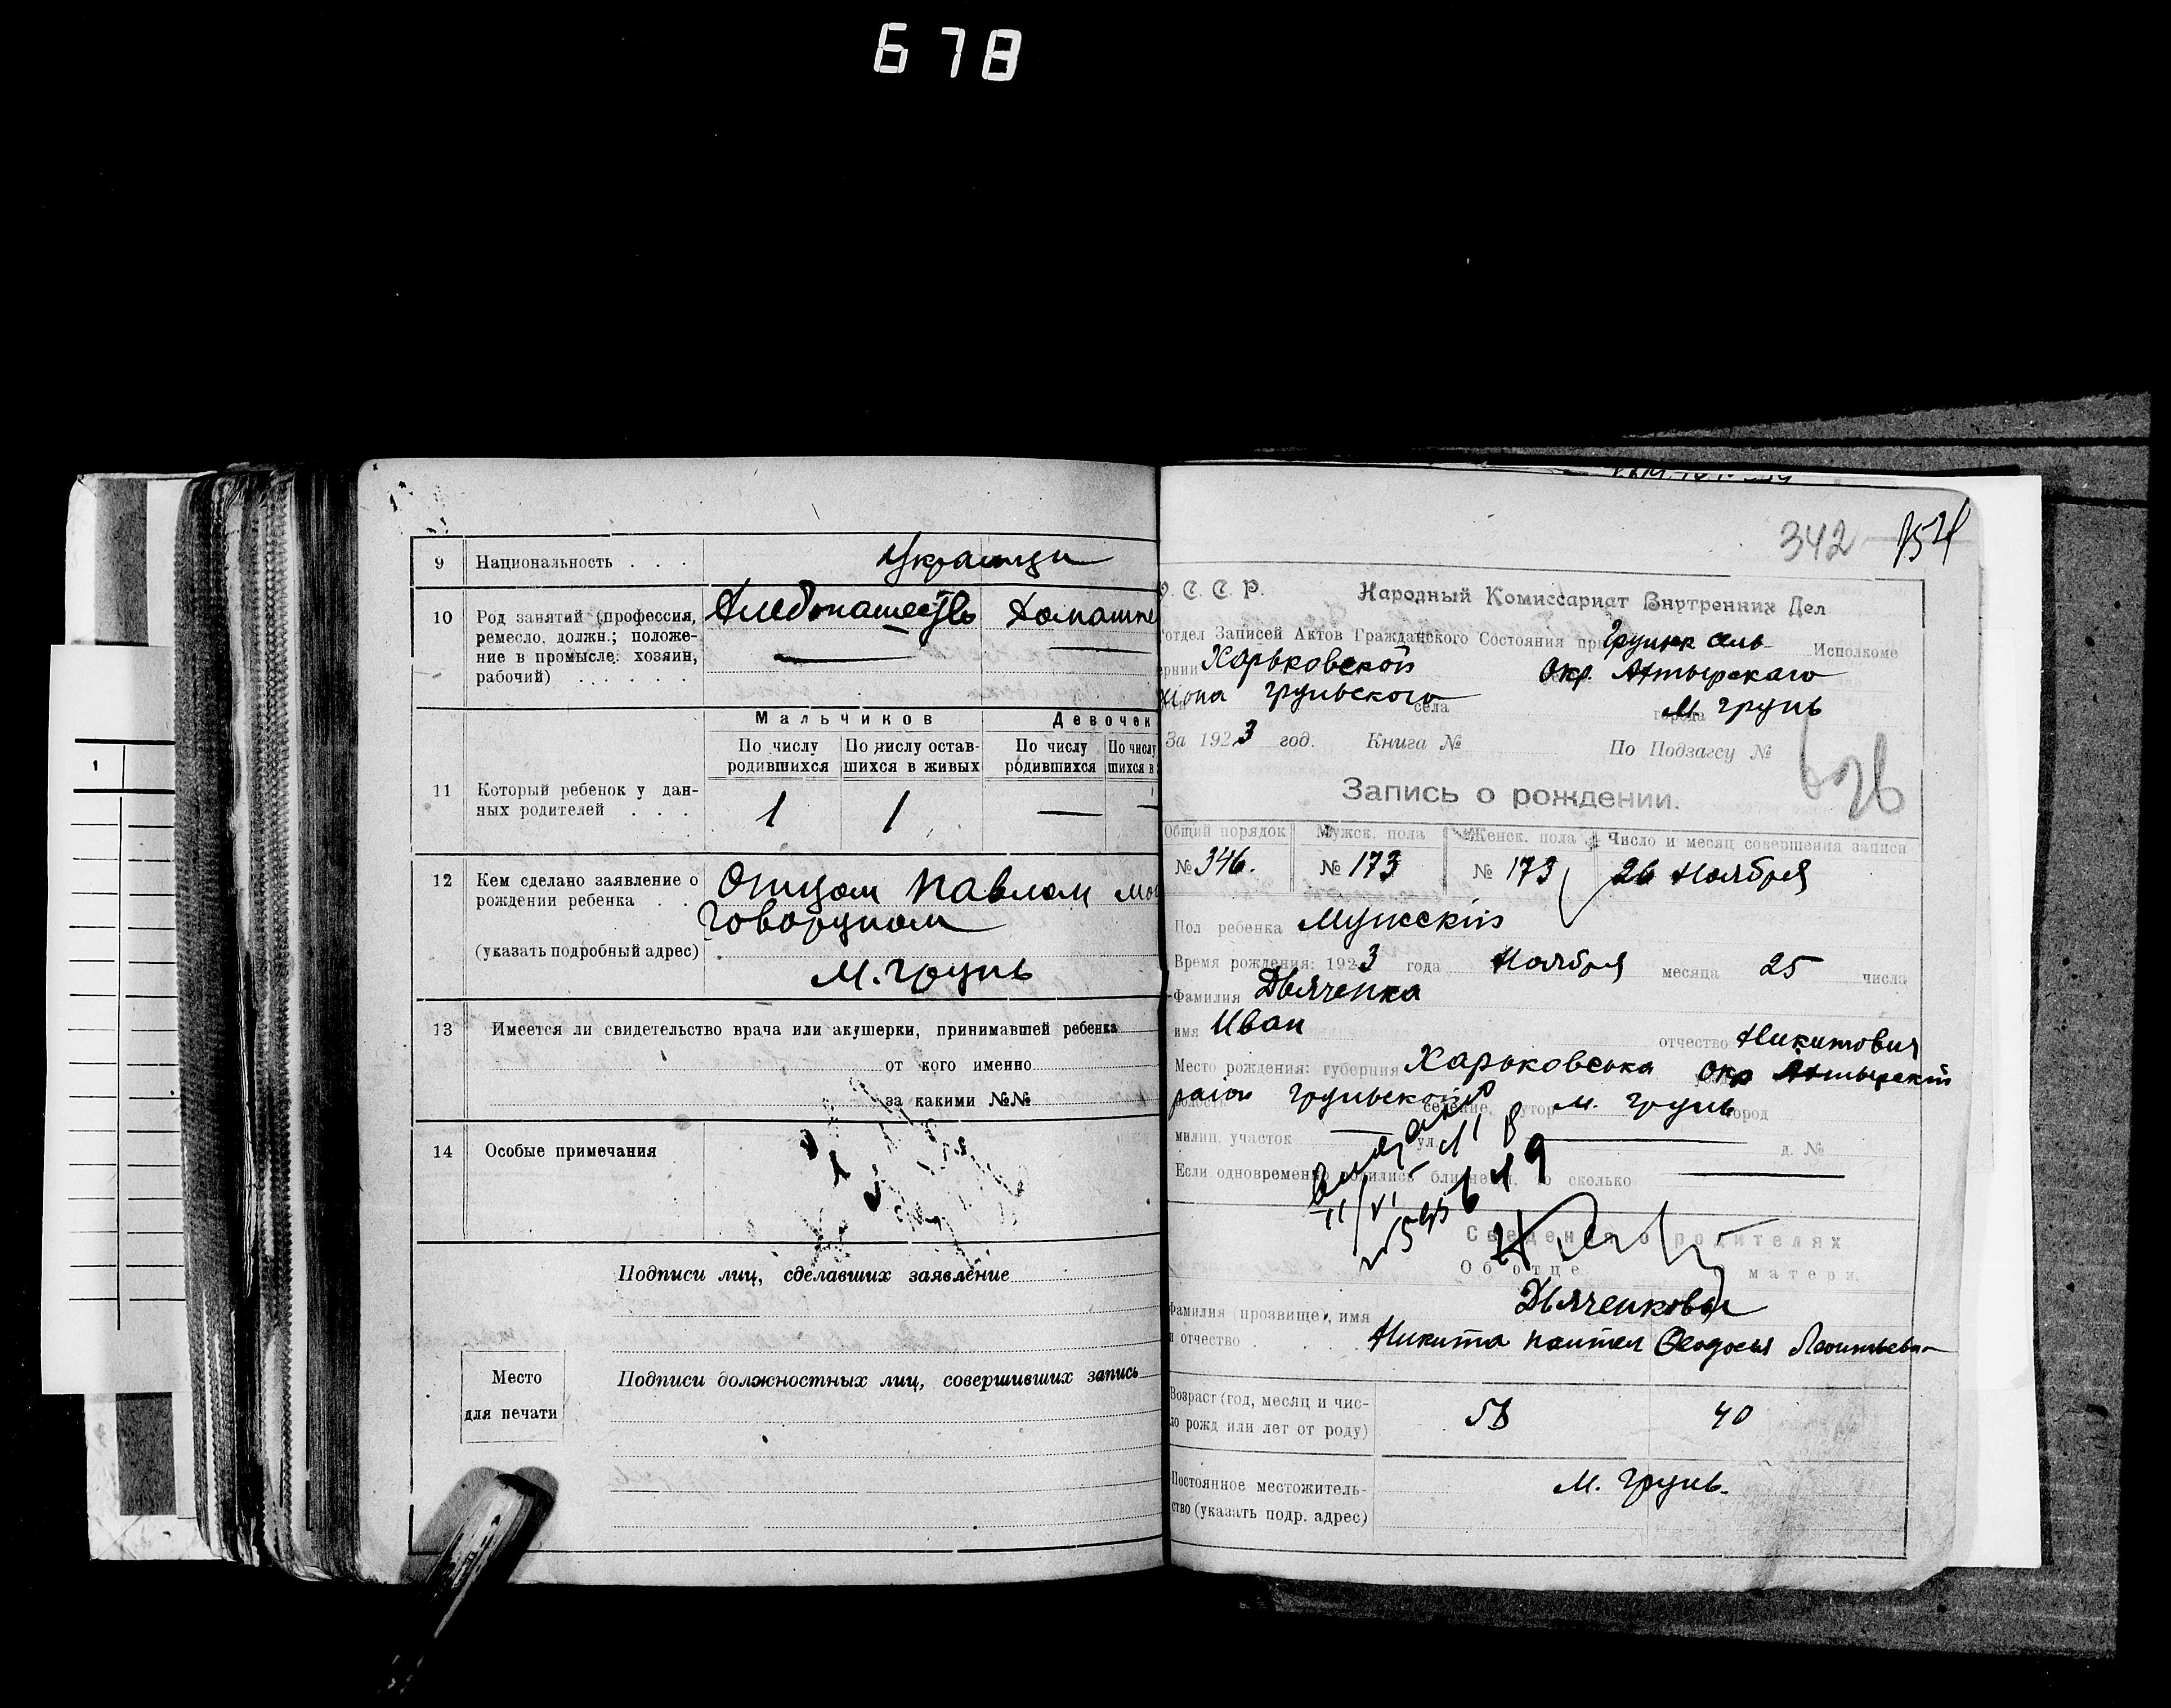 678
9 Национальность . . . Украинци
10 Род занятий (профессия, ремесло, должн.; положение в промысле: хозяин, рабочий) . . . . . .
Хлебопашеств Домашне
11 Который ребенок у данных родителей . . .
Мальчиков Девочек
По числу родившихся По числу оставшихся в живых По числу родившихся По числу шихся в
1 1 — —
12 Кем сделано заявление о рождении ребенка . .
(указать подробный адрес)
Отцом Павлом
Говоруном
М. Грунь
13 Имеется ли свидетельство врача или акушерки, принимавшей ребенка
от кого именно
за какими №№
14 Особые примечания
Подписи лиц, сделавших заявление
Место для печати
Подписи должностных лиц, совершивших запись
342
С. С. Р. Народный Комиссариат Внутренних Дел
отдел Записей Актов Гражданского Состояния при Груньк сель Исполкоме
ернии Харьковской Окр. Ахтырскаго
Грунського села города М. Грунь
За 1923 год. Книга № По Подзагсу №
Запись о рождении.
Общий порядок Мужск. пола Женск. пола Число и месяц совершения записи
№ 346. № 173 № 173 26 Ноября
Пол ребенка Мужскій
Время рождения: 1923 года Ноября месяца 25 числа
Фамилия Дьяченко
имя Иван
отчество Никитович
Место рождения: губерния Харьковська Окр Ахтырскій
раіон Груньский селение, хутор М. Грунь город
милиц. участок — ул. — д. №
Если одновременно родились близнецы, то сколько —
Сведения о родителях
Об отце матери.
Дьяченковы
Фамилия прозвище, имя
и отчество . . . Никита Пантел Феодосья Леонтьевн
Возраст (год, месяц и число рожд или лет от роду) 58 40
Постоянное местожительство (указать подр. адрес) М. Грунь